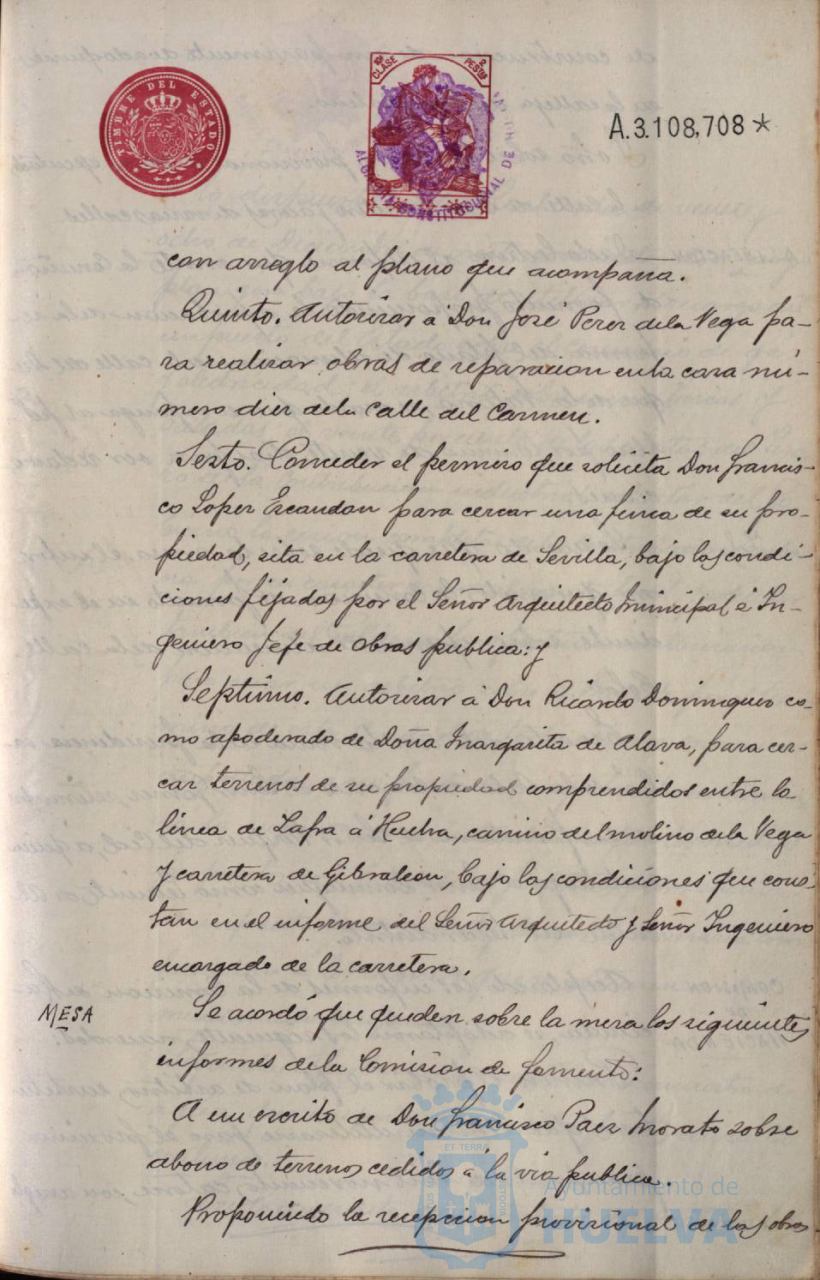 TIMBRE DEL ESTADO
10ª CLASE 2 PESETAS
ALCALDIA CONSTITUCIONAL DE
A.3.108,708 *
con arreglo al plano que acompaña.
Quinto. Autorizar á Don José Perez de la Vega pa-
ra realizar obras de reparacion en la casa nú-
mero diez de la calle del Carmen.
Sexto. Conceder el permiso que solicita Don Francis-
co Lopez Escandon para cercar una finca de su pro-
piedad, sita en la carretera de Sevilla, bajo las condi-
ciones fijadas por el Señor Arquitecto Municipal é In-
geniero Jefe de obras publica: y
Septimo. Autorizar á Don Ricardo Dominguez co-
mo apoderado de Doña Margarita de Alava, para cer-
car terrenos de su propiedad comprendidos entre la
línea de Zafra á Huelva, camino del molino de la Vega
y carretera de Gibraleon, bajo las condiciones que cons-
tan en el informe del Señor Arquitecto y Señor Ingeniero
encargado de la carretera.
MESA
Se acordó que queden sobre la mesa los siguientes
informes de la Comision de Fomento:
A un escrito de Don Francisco Paez Morato sobre
abono de terrenos cedidos á la via publica.
Proponiendo la recepcion provisional de las obras
ET TERRA
Ayuntamiento de
HUELVA